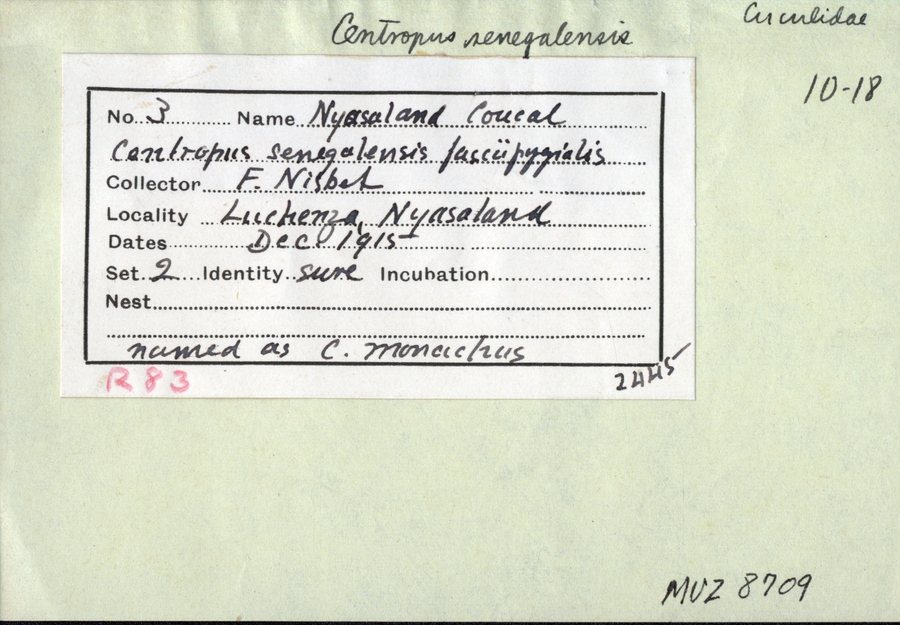 Cuculidae
Centropus senegalensis
10-18
No. 3 Name Nyasaland Coucal
Centropus senegalensis fasciipygialis
Collector F. Nisbet
Locality Luchenza, Nyasaland
Dates Dec. 1915
Set 2 Identity sure Incubation
Nest
named as C. monachus
R 83
2445
MVZ 8709